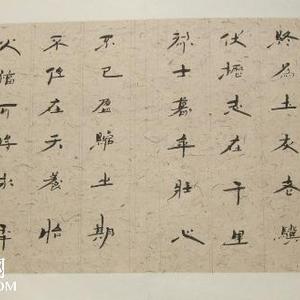 終為土灰老驥
伏櫪志在千里
烈士暮年壯心
不已盈縮之期
不但在天養怡
之福可得永年
网